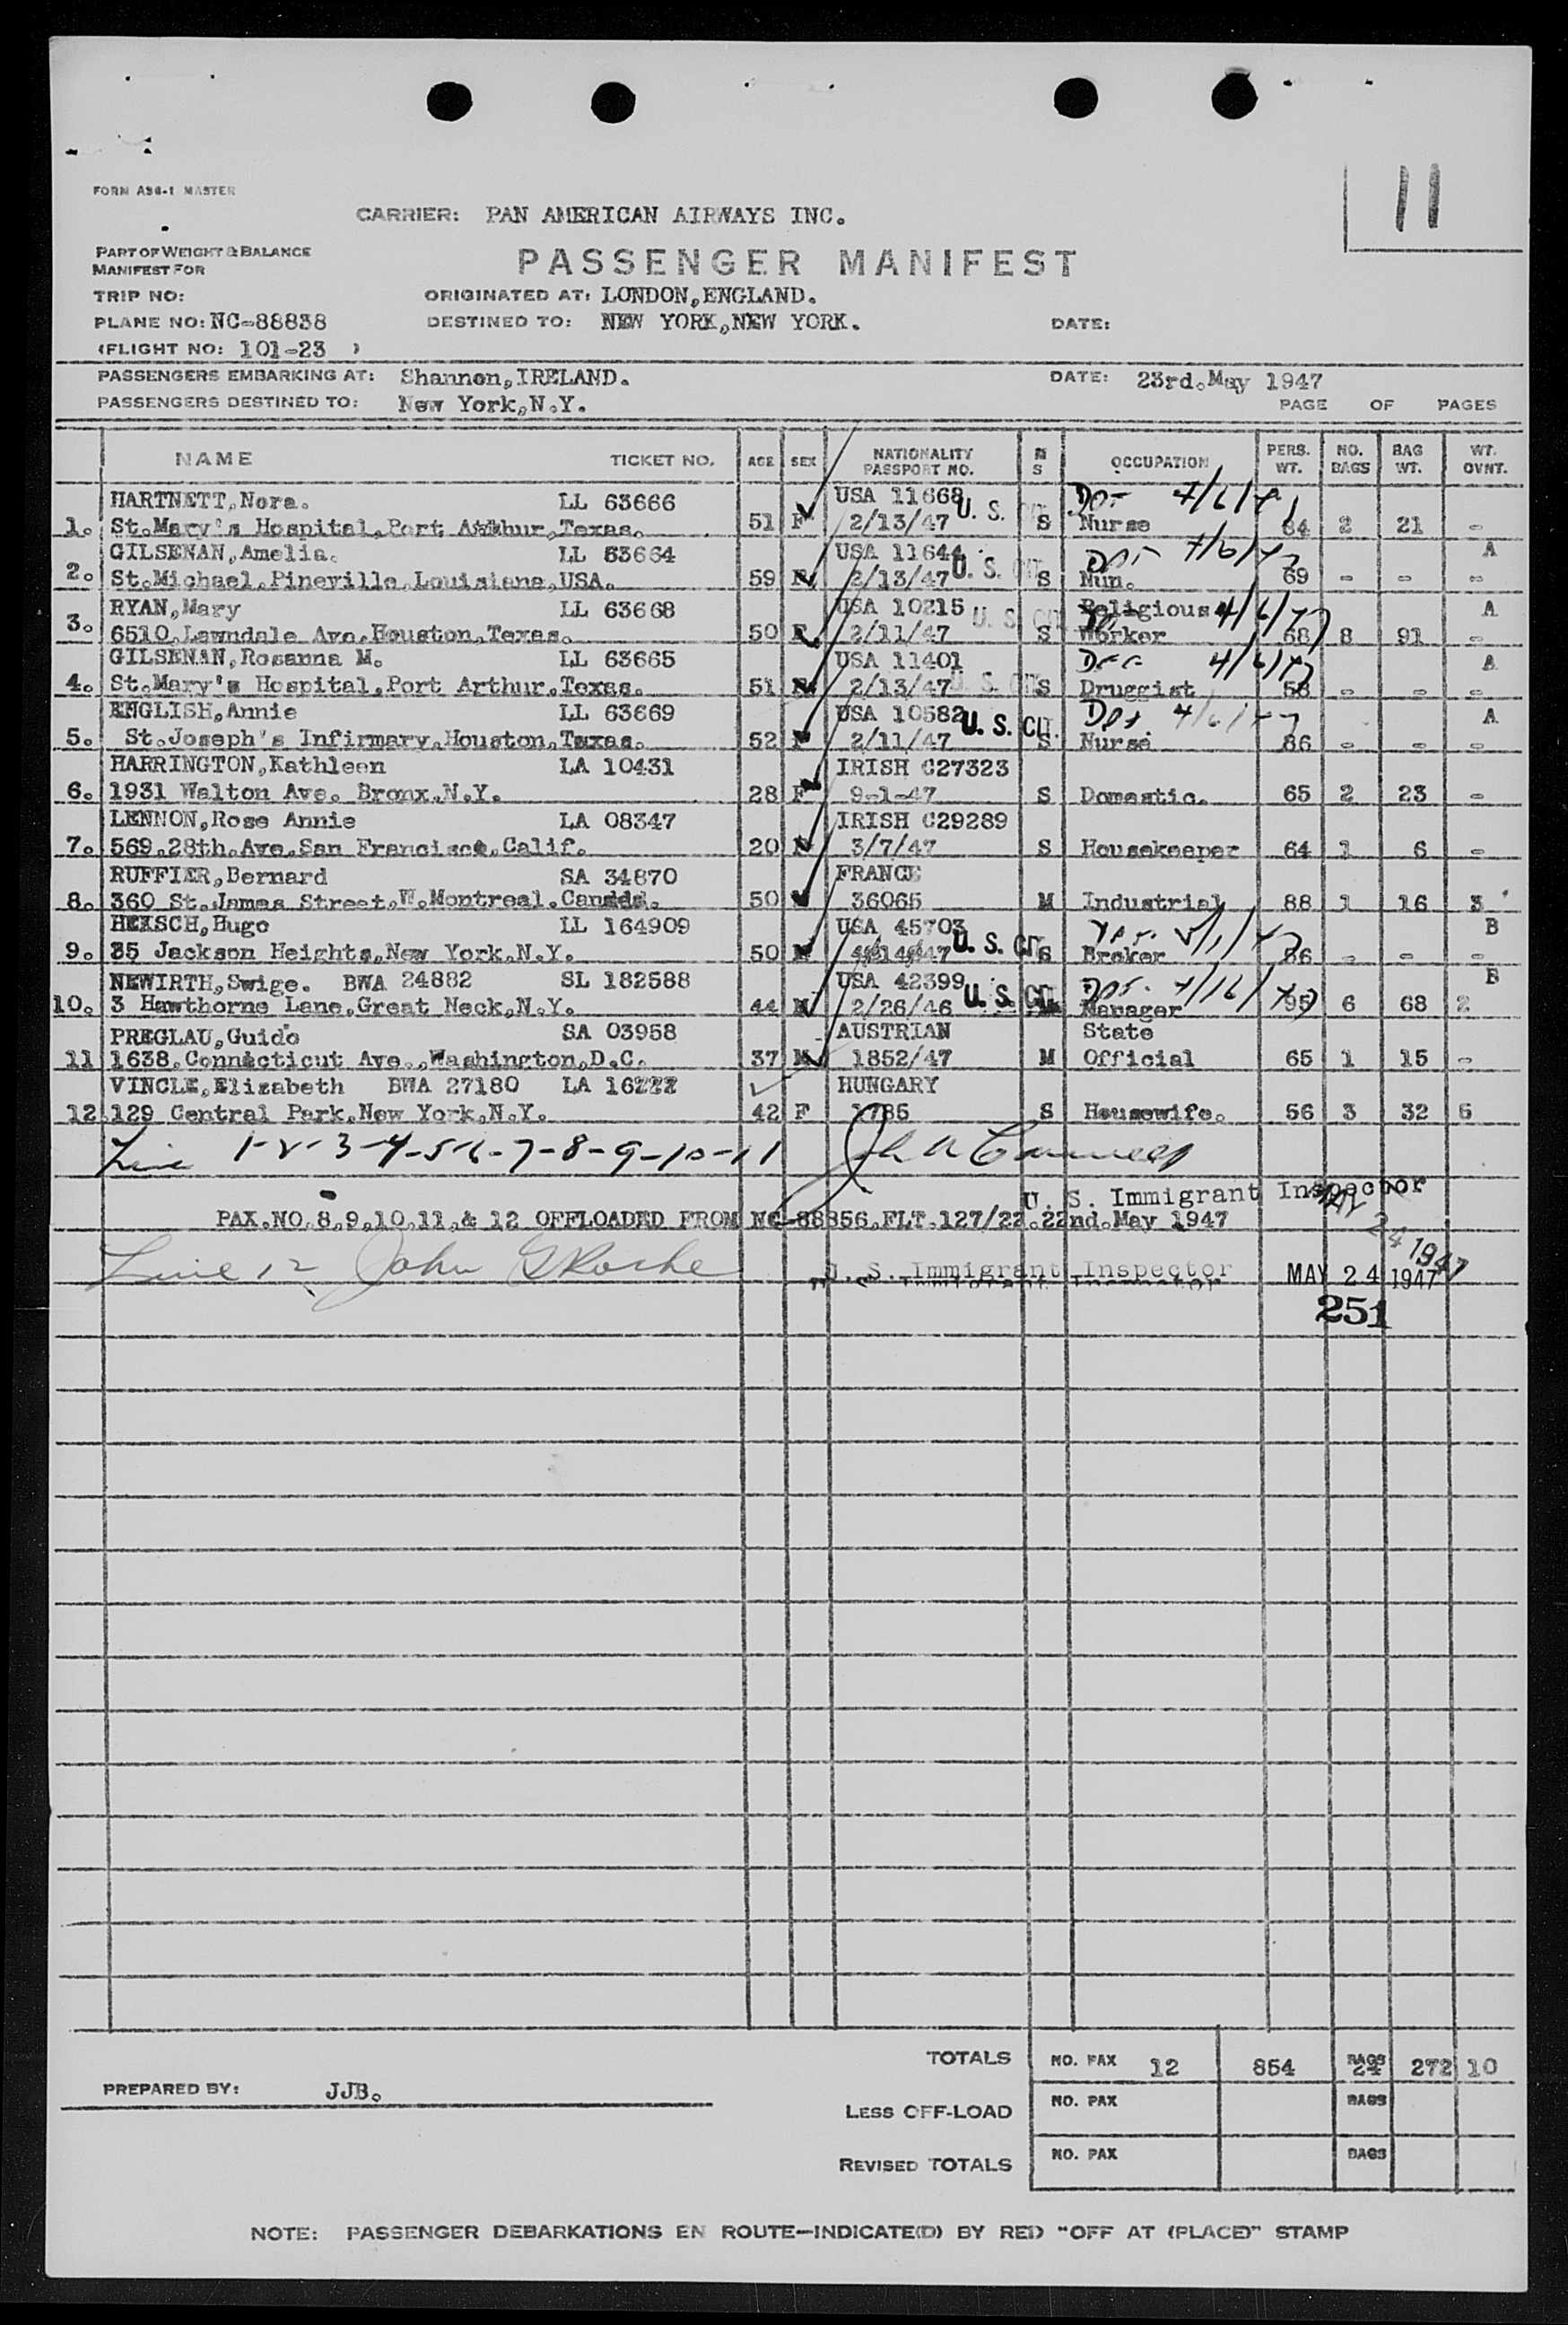 11
FORM A36-1 MASTER
CARRIER: PAN AMERICAN AIRWAYS INC.
PART OF WEIGHT & BALANCE
MANIFEST FOR
PASSENGER MANIFEST
TRIP NO: ORIGINATED AT: LONDON,ENGLAND.
PLANE NO: NC-88838 DESTINED TO: NEW YORK,NEW YORK. DATE:
(FLIGHT NO: 101-23 )
PASSENGERS EMBARKING AT: Shannon,IRELAND. DATE: 23rd.May 1947
PASSENGERS DESTINED TO: New York,N.Y. PAGE OF PAGES
NAME TICKET NO. AGE SEX NATIONALITY PASSPORT NO. M S OCCUPATION PERS. WT. NO. BAGS BAG WT. WT. OVNT.
HARTNETT,Nora. LL 63666 USA 11668 U. S.
1. St.Mary's Hospital,Port Arthur,Texas. 51 F 2/13/47 S Nurse 64 2 21 -
GILSENAN,Amelia. LL 63664 USA 11644 U. S. A
2. St.Michael,Pineville,Louisiana,USA. 59 F 2/13/47 S Nun. 69 - - -
RYAN,Mary LL 63668 USA 10215 U. S. Religious 4/6/47 A
3. 6510,Lawndale Ave,Houston,Texas. 50 F 2/11/47 S Worker 68 8 91 -
GILSENAN,Rosanna M. LL 63665 USA 11401 4/6/47 A
4. St.Mary's Hospital,Port Arthur,Texas. 51 F 2/13/47 U. S. S Druggist 58 - - -
ENGLISH,Annie LL 63669 USA 10582 U. S. CIT. A
5. St.Joseph's Infirmary,Houston,Texas. 52 F 2/11/47 S Nurse 86 - - -
HARRINGTON,Kathleen LA 10431 IRISH C27323
6. 1931 Walton Ave. Bronx.N.Y. 28 F 9-1-47 S Domestic. 65 2 23 -
LENNON,Rose Annie LA 08347 IRISH C29289
7. 569.28th.Ave.San Francisco.Calif. 20 F 3/7/47 S Housekeeper 64 1 6 -
RUFFIER,Bernard SA 34870 FRANCE
8. 360 St.James Street,W.Montreal.Canada. 50 M 36065 M Industrial 88 1 16 3
HEKSCH,Hugo LL 164909 USA 45703 U. S. CIT. B
9. 35 Jackson Heights,New York,N.Y. 50 M S Broker 86 - - -
NEWIRTH,Swige. BWA 24882 SL 182588 USA 42399 U. S. CIT. B
10. 3 Hawthorne Lane,Great Neck,N.Y. 44 M 2/26/46 Manager 95 6 68 2
PREGLAU,Guido SA 03958 AUSTRIAN State
11 1638.Connecticut Ave.,Washington,D.C. 37 M 1852/47 M Official 65 1 15 -
VINCLE,Elizabeth BWA 27180 LA 16222 HUNGARY
12 129 Central Park,New York,N.Y. 42 F 1785 S Housewife. 56 3 32 5
Line 1-2-3-4-5-6-7-8-9-10-11
U. S. Immigrant Inspector
PAX.NO.8,9,10,11,& 12 OFFLOADED FROM NC-88856.FLT.127/22.22nd.May 1947
MAY 24 1947
Line 12 John G Roche U. S. Immigrant Inspector MAY 24 1947
251
TOTALS NO. PAX 12 854 BAGS 24 272 10
PREPARED BY: JJB.
LESS OFF-LOAD NO. PAX BAGS
REVISED TOTALS NO. PAX BAGS
NOTE: PASSENGER DEBARKATIONS EN ROUTE—INDICATE(D) BY RED "OFF AT (PLACE)" STAMP